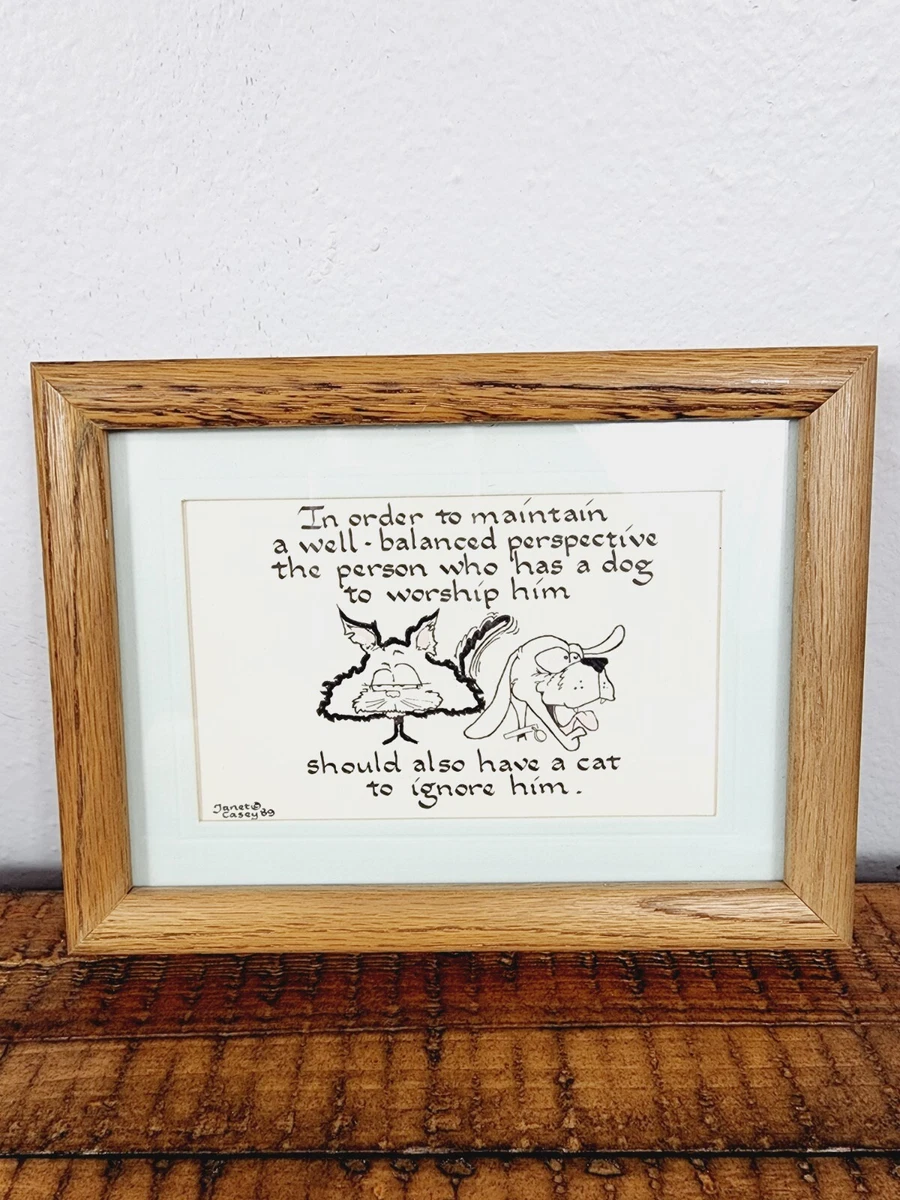 In order to maintain
a well-balanced perspective
the person who has a dog
to worship him
should also have a cat
to ignore him.
Janet ©
Casey 89